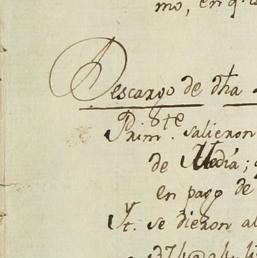 mo, en q.
Descargo de dha
Prim.te salieron
de Media;
en pago de
Yt. se dieron al